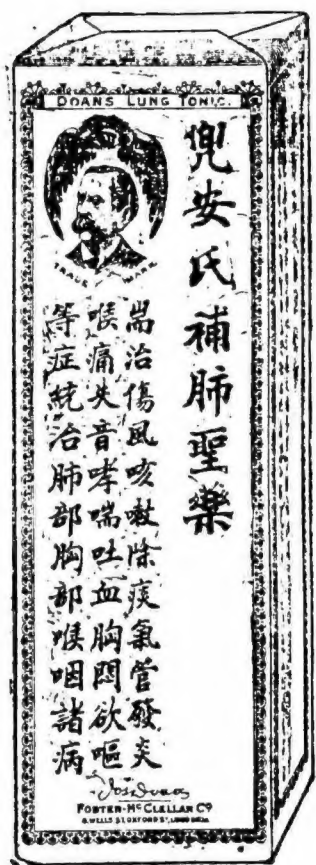 DOANS LUNG TONIC.
TRADE MARK
兜安氏補肺聖藥
耑治傷風咳嗽除痰氣管發炎
喉痛失音哮喘吐血胸悶欲嘔
等症統治肺部胸部喉咽諸病
Jos Doan
FOSTER-McCLELLAN Cº
8, WELLS ST, OXFORD ST, LONDON